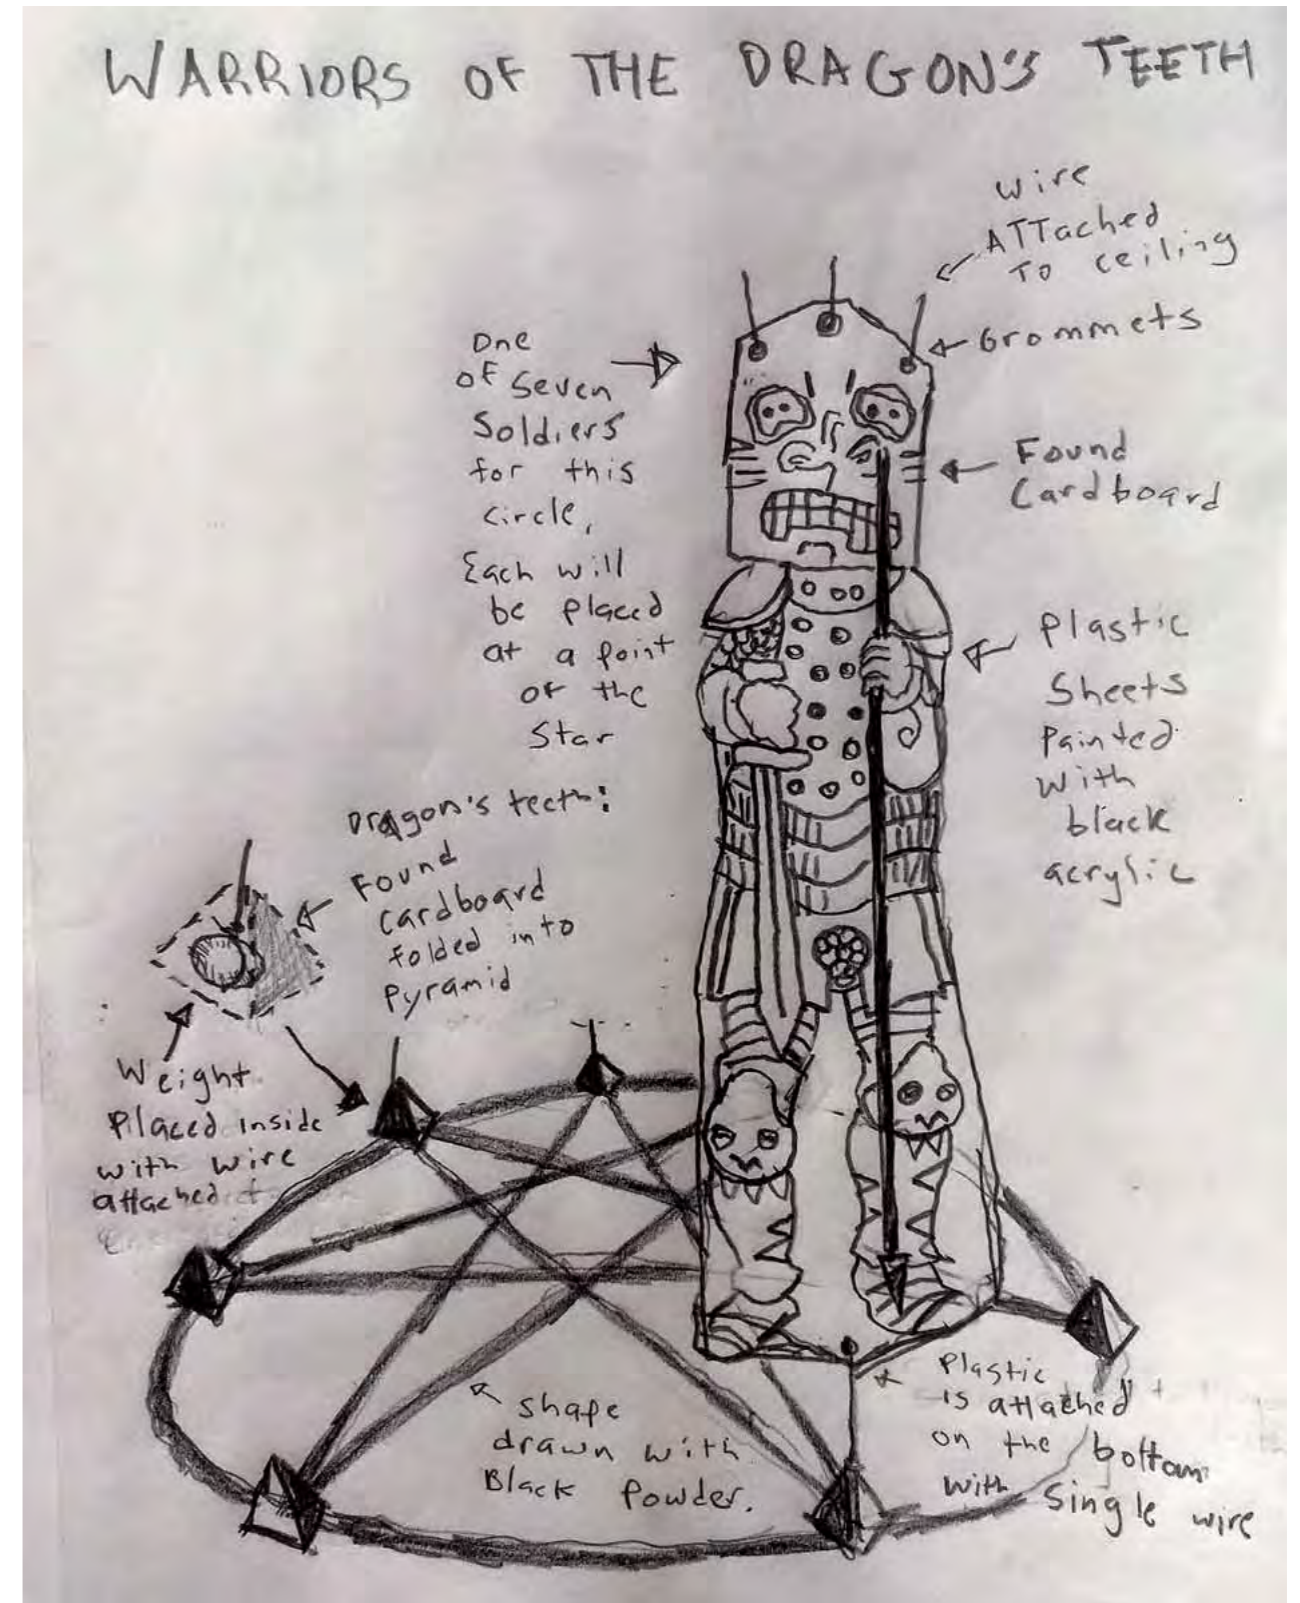 WARRIORS OF THE DRAGON'S TEETH
wire
ATTached
To ceiling
Grommets
One
of Seven
Soldiers
for this
circle,
Each will
be placed
at a point
of the
Star
Found
Cardboard
Plastic
Sheets
Painted
with
black
acrylic
Dragon's teeth:
Found
cardboard
folded into
Pyramid
Weight
Placed inside
with wire
attached
shape
drawn with
Black Powder.
Plastic
is attached
on the bottom
with single wire